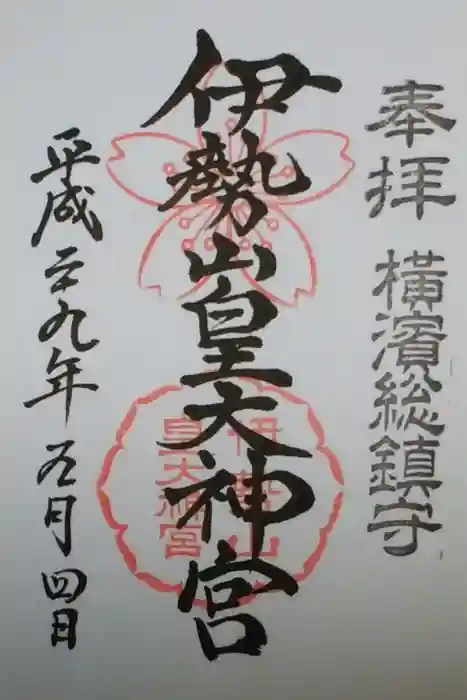 奉拝
横濱総鎮守
伊勢山皇大神宮
伊勢山
皇大神宮
平成二九年五月四日